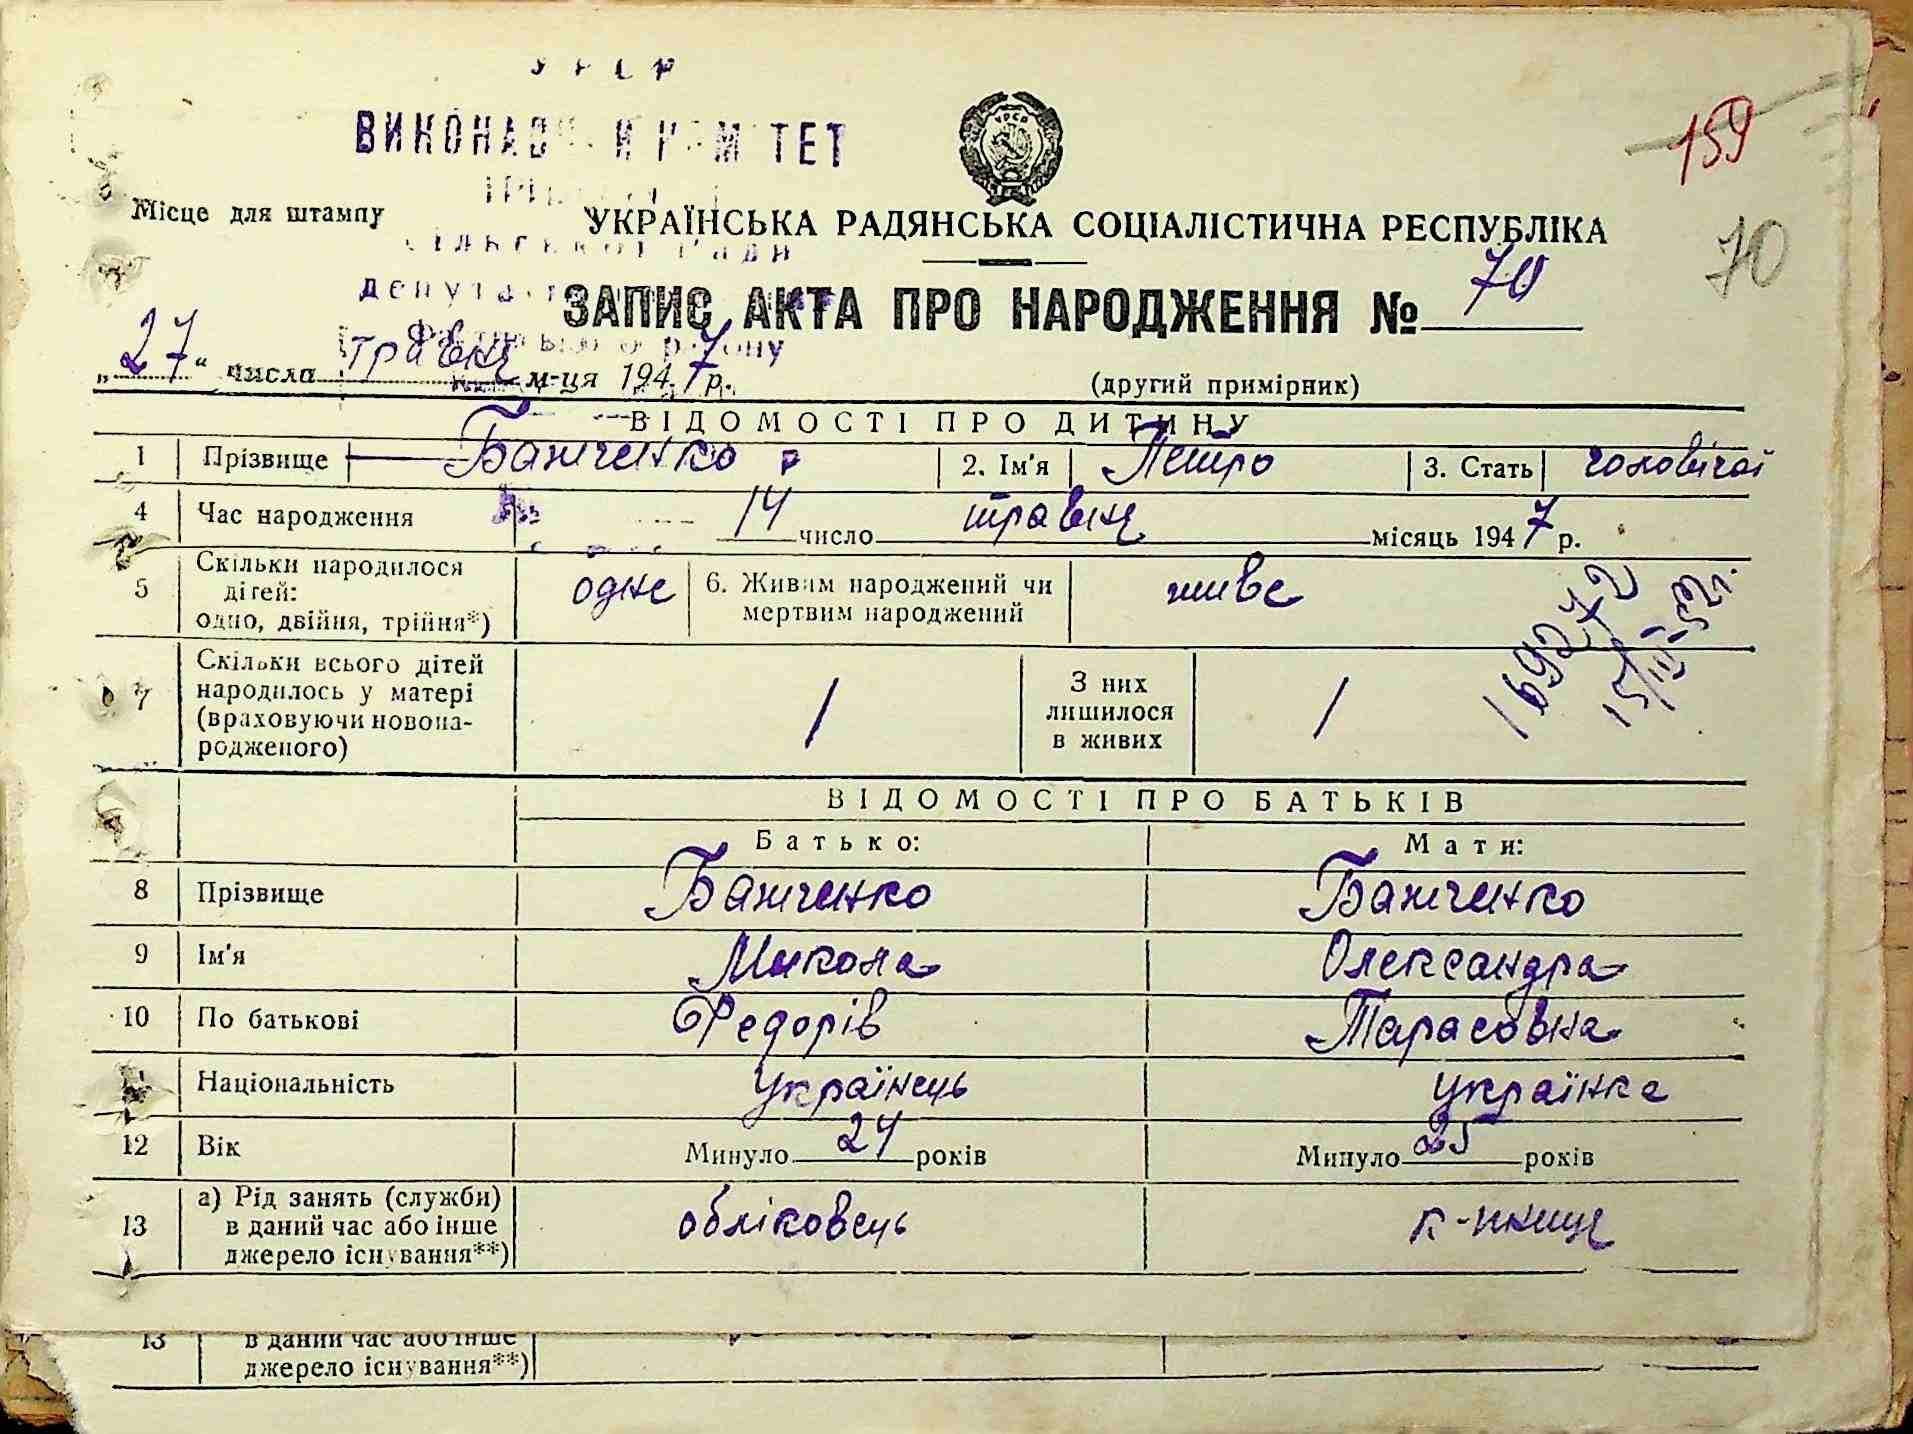 УРСР
ВИКОНАВ И К МІТЕТ
159
Місце для штампу
УКРАЇНСЬКА РАДЯНСЬКА СОЦІАЛІСТИЧНА РЕСПУБЛІКА
СІЛЬСЬКОЇ РАДИ
70
ЗАПИС АКТА ПРО НАРОДЖЕННЯ № 70
„27“ числа травня м-ця 1947 р.
(другий примірник)
ВІДОМОСТІ ПРО ДИТИНУ
1 Прізвище Бажченко 2. Ім'я Петро 3. Стать чоловічої
4 Час народження 14 число травня місяць 1947 р.
5 Скільки народилося дітей: одно, двійня, трійня*) одне 6. Живим народжений чи мертвим народжений живе
7 Скільки всього дітей народилось у матері (враховуючи новонародженого) 1 З них лишилося в живих 1
ВІДОМОСТІ ПРО БАТЬКІВ
Батько: Мати:
8 Прізвище Бажченко Бажченко
9 Ім'я Микола Олександра
10 По батькові Федорів Тарасовна
11 Національність Українець українка
12 Вік Минуло 24 років Минуло 25 років
13 а) Рід занять (служби) в даний час або інше джерело існування**) обліковець к-пниця
13 в даний час або інше
джерело існування**)